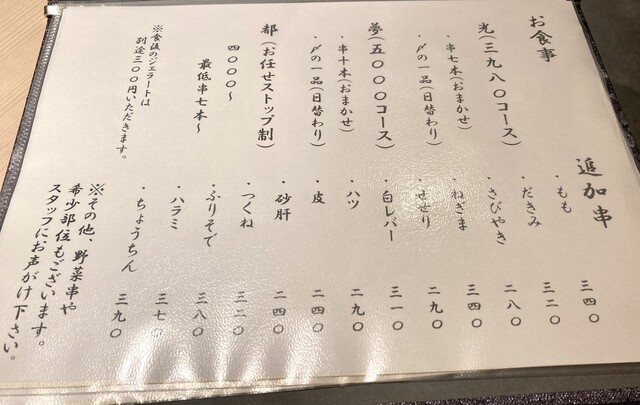 お食事
光(三九八〇コース)
・串七本(おまかせ)
・〆の一品(日替わり)
夢(五〇〇〇コース)
・串十本(おまかせ)
・〆の一品(日替わり)
都(お任せストップ制)
四〇〇〇～
最低串七本～
※食後のジェラートは
別途三〇〇円いただきます。
追加串
・もも 三四〇
・だきみ 三二〇
・さびやき 二八〇
・ねぎま 三四〇
・せせり 二九〇
・白レバー 三一〇
・ハツ 二九〇
・皮 二四〇
・砂肝 二四〇
・つくね 三二〇
・ふりそで 三八〇
・ハラミ 三七〇
・ちょうちん 三九〇
※その他、野菜串や
希少部位もございます。
スタッフにお声がけ下さい。